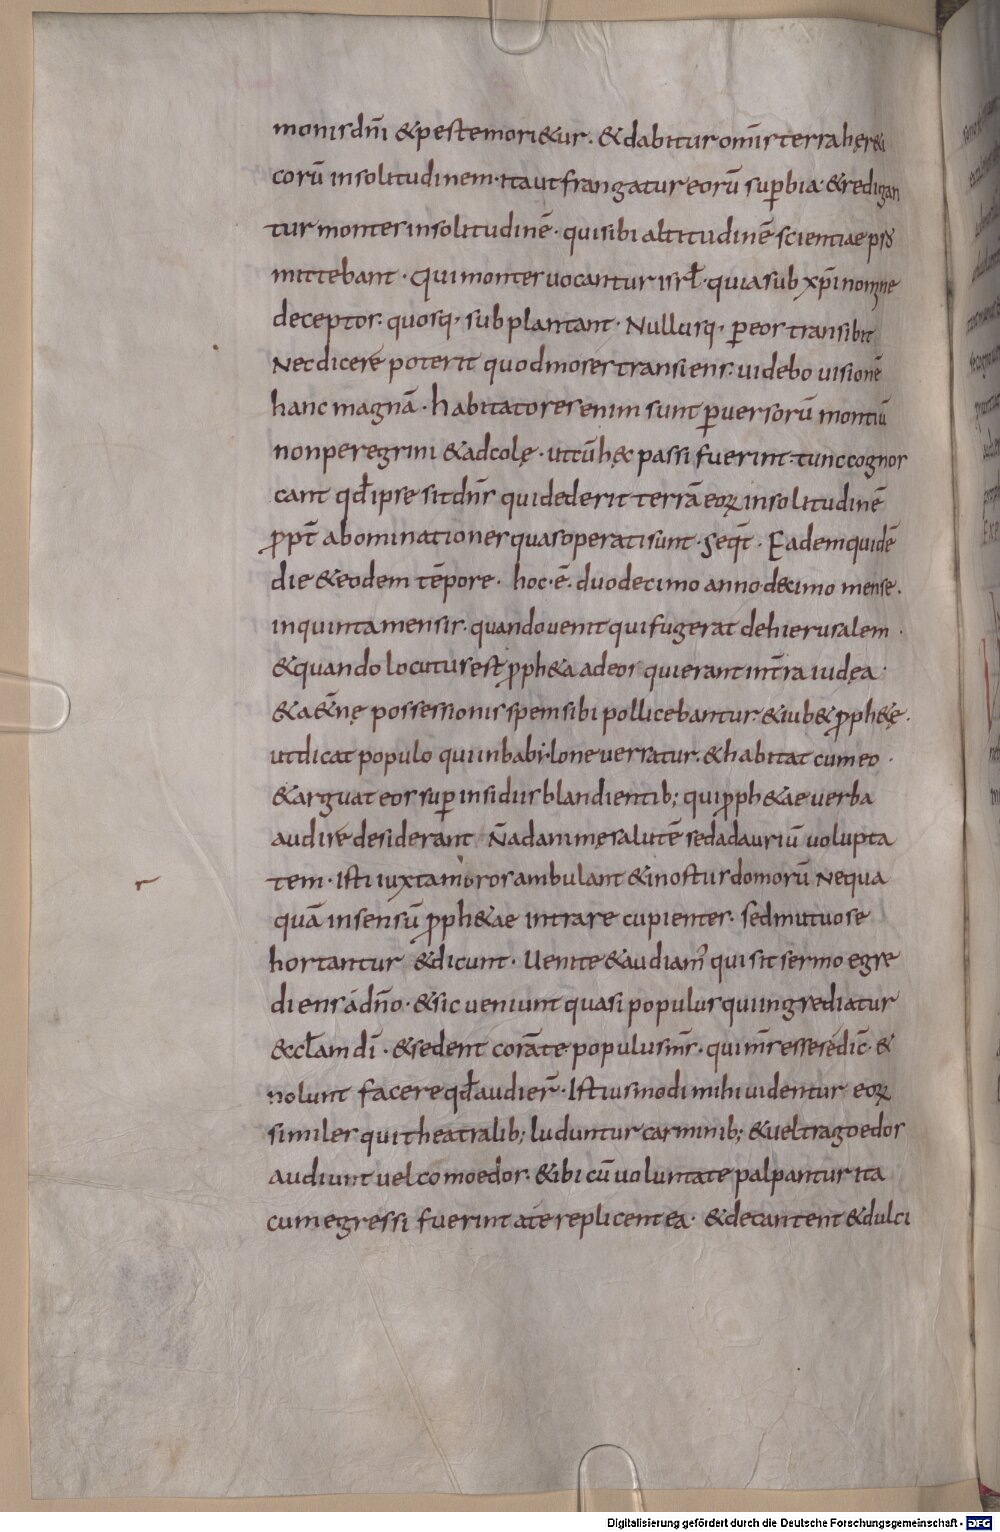 monis dñi &peste mori&ur. &dabitur om̄is terra hęr&i
corū insolitudinem. ita ut frangatur eorū suꝑbia. &redigan
tur montes insolitudinē. quisibi altitudinē scientiae
mittebant. Qui montes uocantur isrł. quia sub xp̄i nomine
deceptos quosq; subplantant. Nullusq; ꝑ eos transibit
Nec dicere poterit quod moses transiens. uidebo uisionē
hanc magnā. habitatores enim sunt ꝑuersorū montiū
non peregrini &adcolę. ut cū hęc passi fuerint. tunc cognos
cant qđ ipse sit dn̄s qui dederit terrā eoꝝ insolitudinē
ꝓpt̄ abominationes quas operati sunt. Seqt̄. Eadem quidē
die &eodem tēpore. hoc. ē. duodecimo anno. decimo mense.
in quinta mensis. quando uenit qui fugerat de hierusalem.
&quando locutus est ꝓph&a ad eos qui erant int̄ra iudęa.
&a&̄nę possessionis spem sibi pollicebantur. &iub& ꝓph&ę.
ut dicat populo qui in babilone uersatur. &habitat cum eo.
&arguat eos suꝑ insidiis blandientib; qui ꝓph&ae uerba
audire desiderant Ñ ad animę salutē sed ad auriū uolupta
tem. Isti iuxta muros ambulant &in ostiis domorū Nequa
quā in sensū ꝓph&ae intrare cupientes. sed mutuo se
hortantur &dicunt. Uenite &audiam̄ qui sit sermo egre
diens á dn̄o. &sic ueniunt quasi populus qui ingrediatur
&cłam dī. &sedent corā te populus ms̄. qui m̄s esse se dic̄. &
nolunt facere qđ audier̄. Istiusmodi mihi uidentur eoꝝ
similes qui theatralib; luduntur carminib; &uel tragoedos
audiunt uel comoedos. &ibi cū uoluntate palpantur ita
cum egressi fuerint a te replicent ea. &decantent &dulci
Digitalisierung gefördert durch die Deutsche Forschungsgemeinschaft - DFG